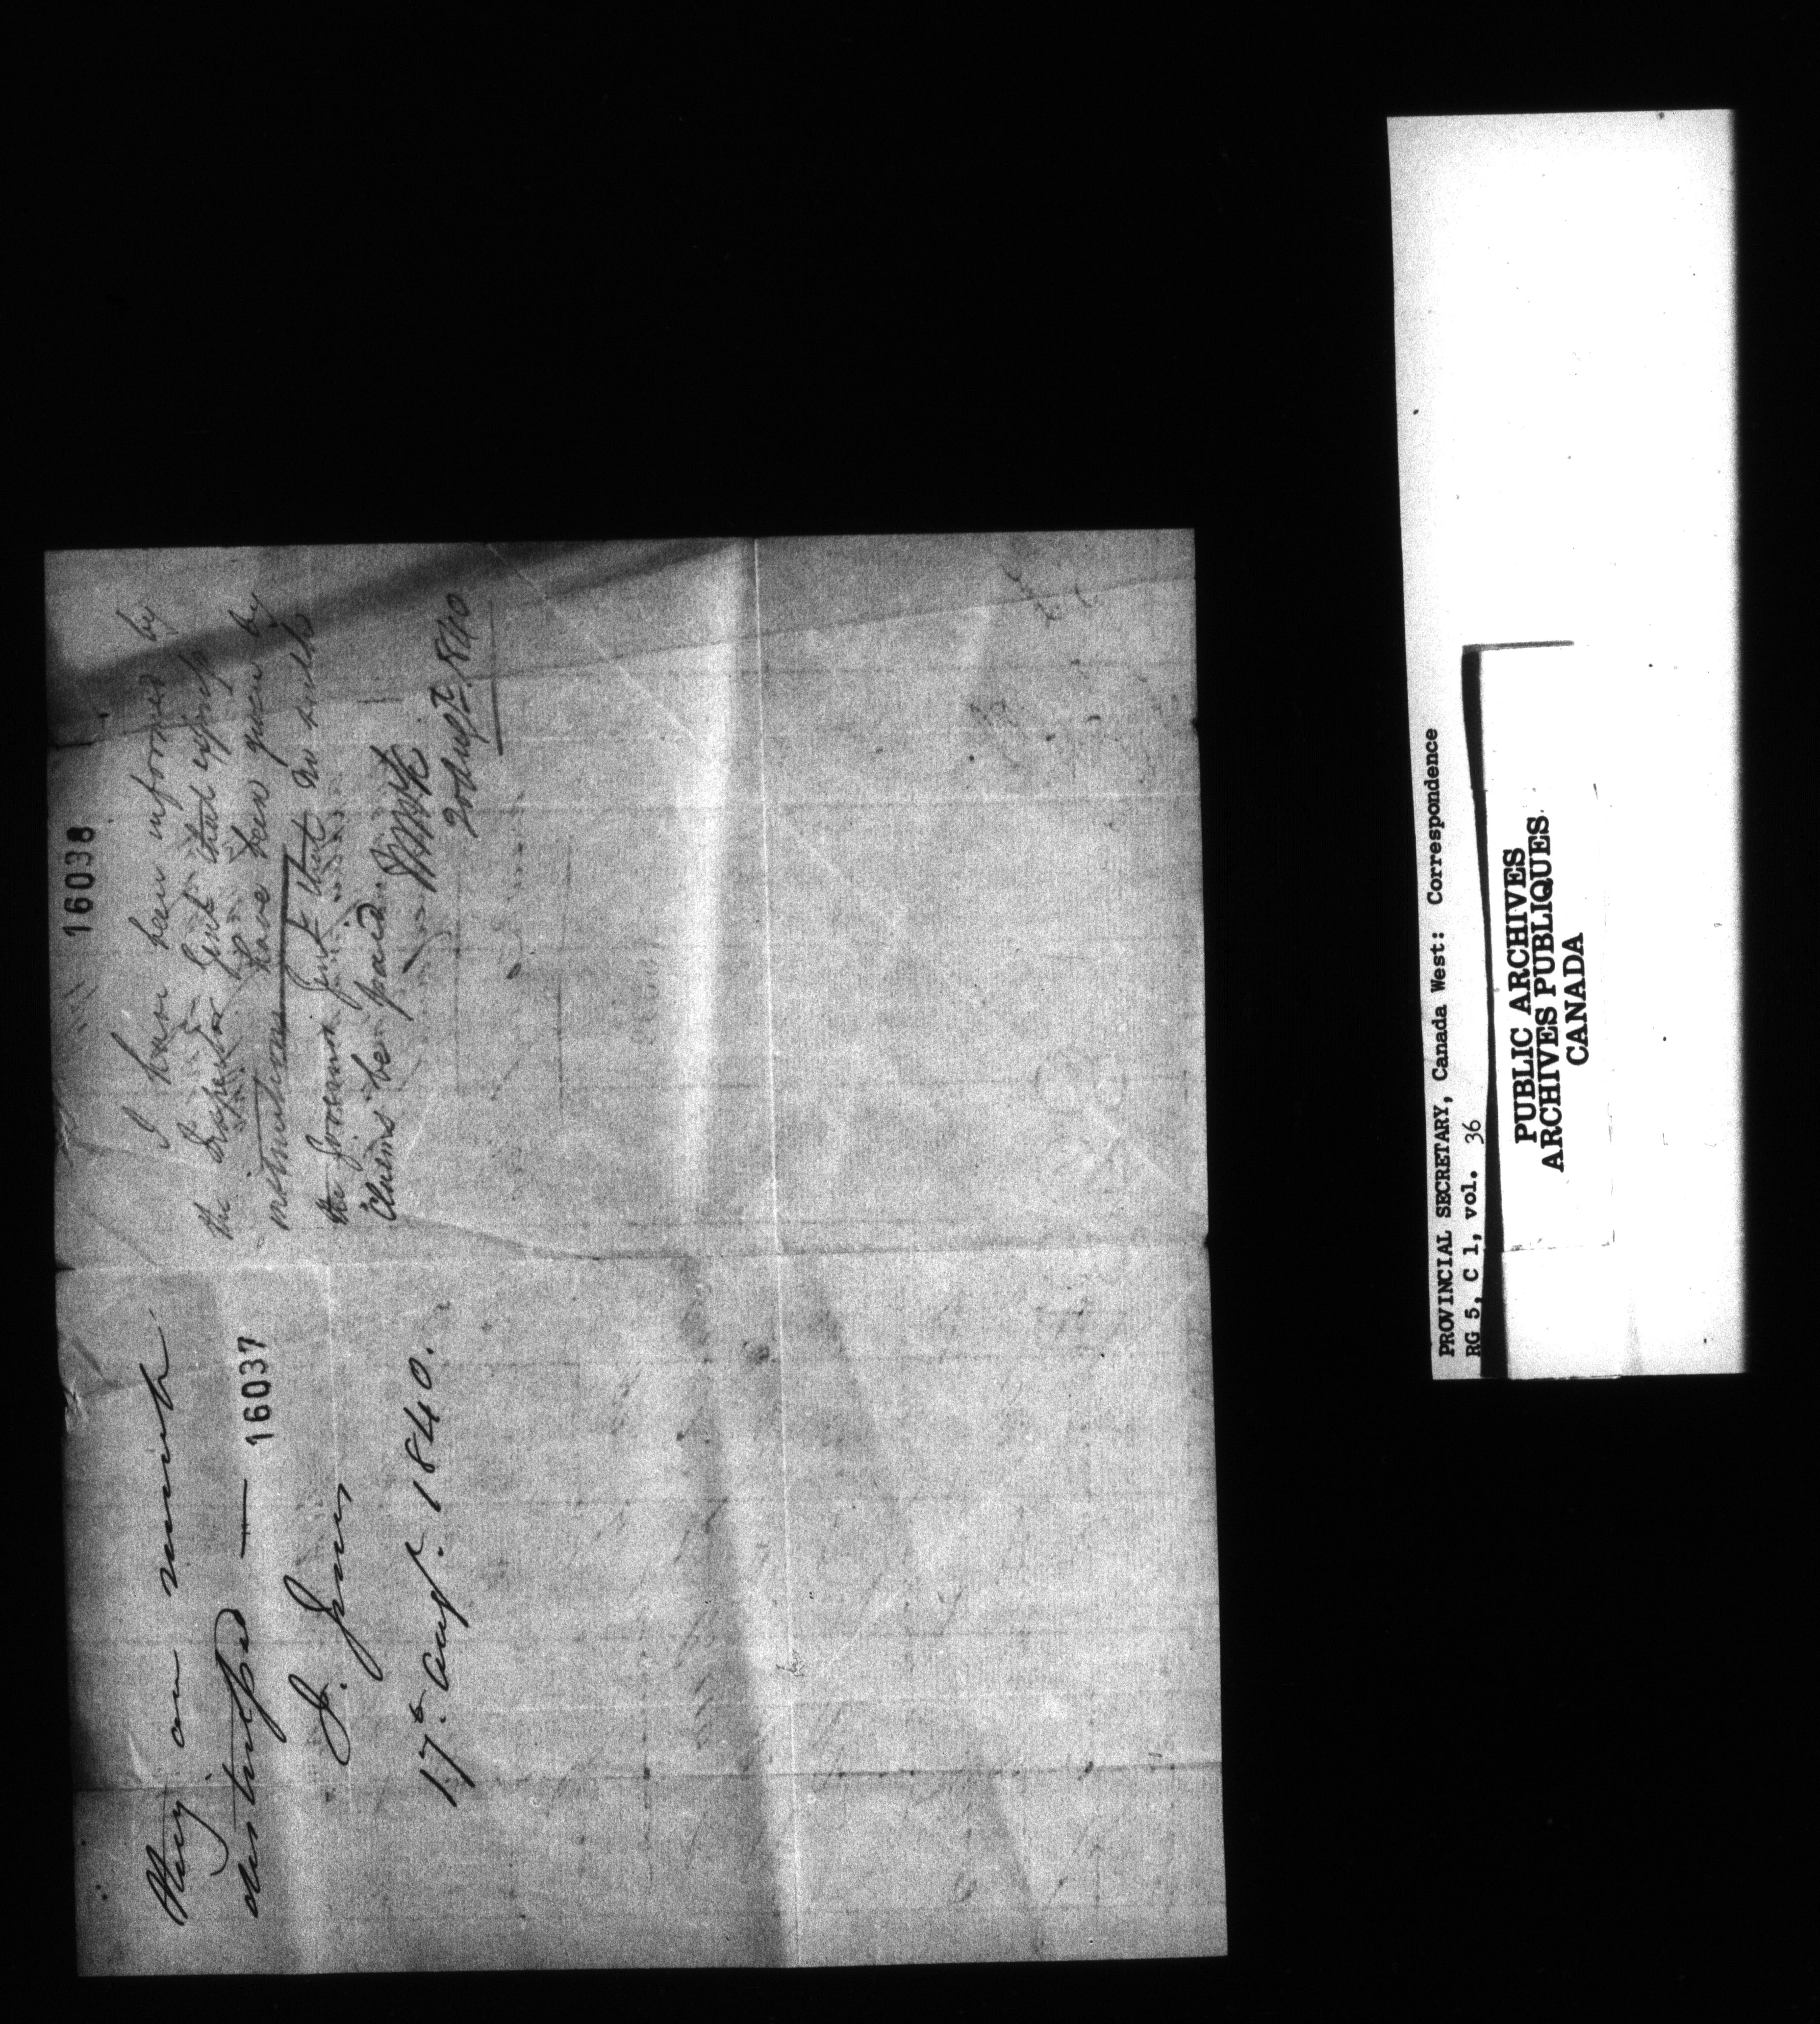 They are much
distressed —
16037
J. Jones
17th Augt. 1840.
16038
I have been informed by
the Inspector Genl that express
instructions have been given by
the Governor Genl that no such
Claims be paid.
20 Augt 1840
PROVINCIAL SECRETARY, Canada West: Correspondence
RG 5, C 1, vol. 36
PUBLIC ARCHIVES
ARCHIVES PUBLIQUES
CANADA